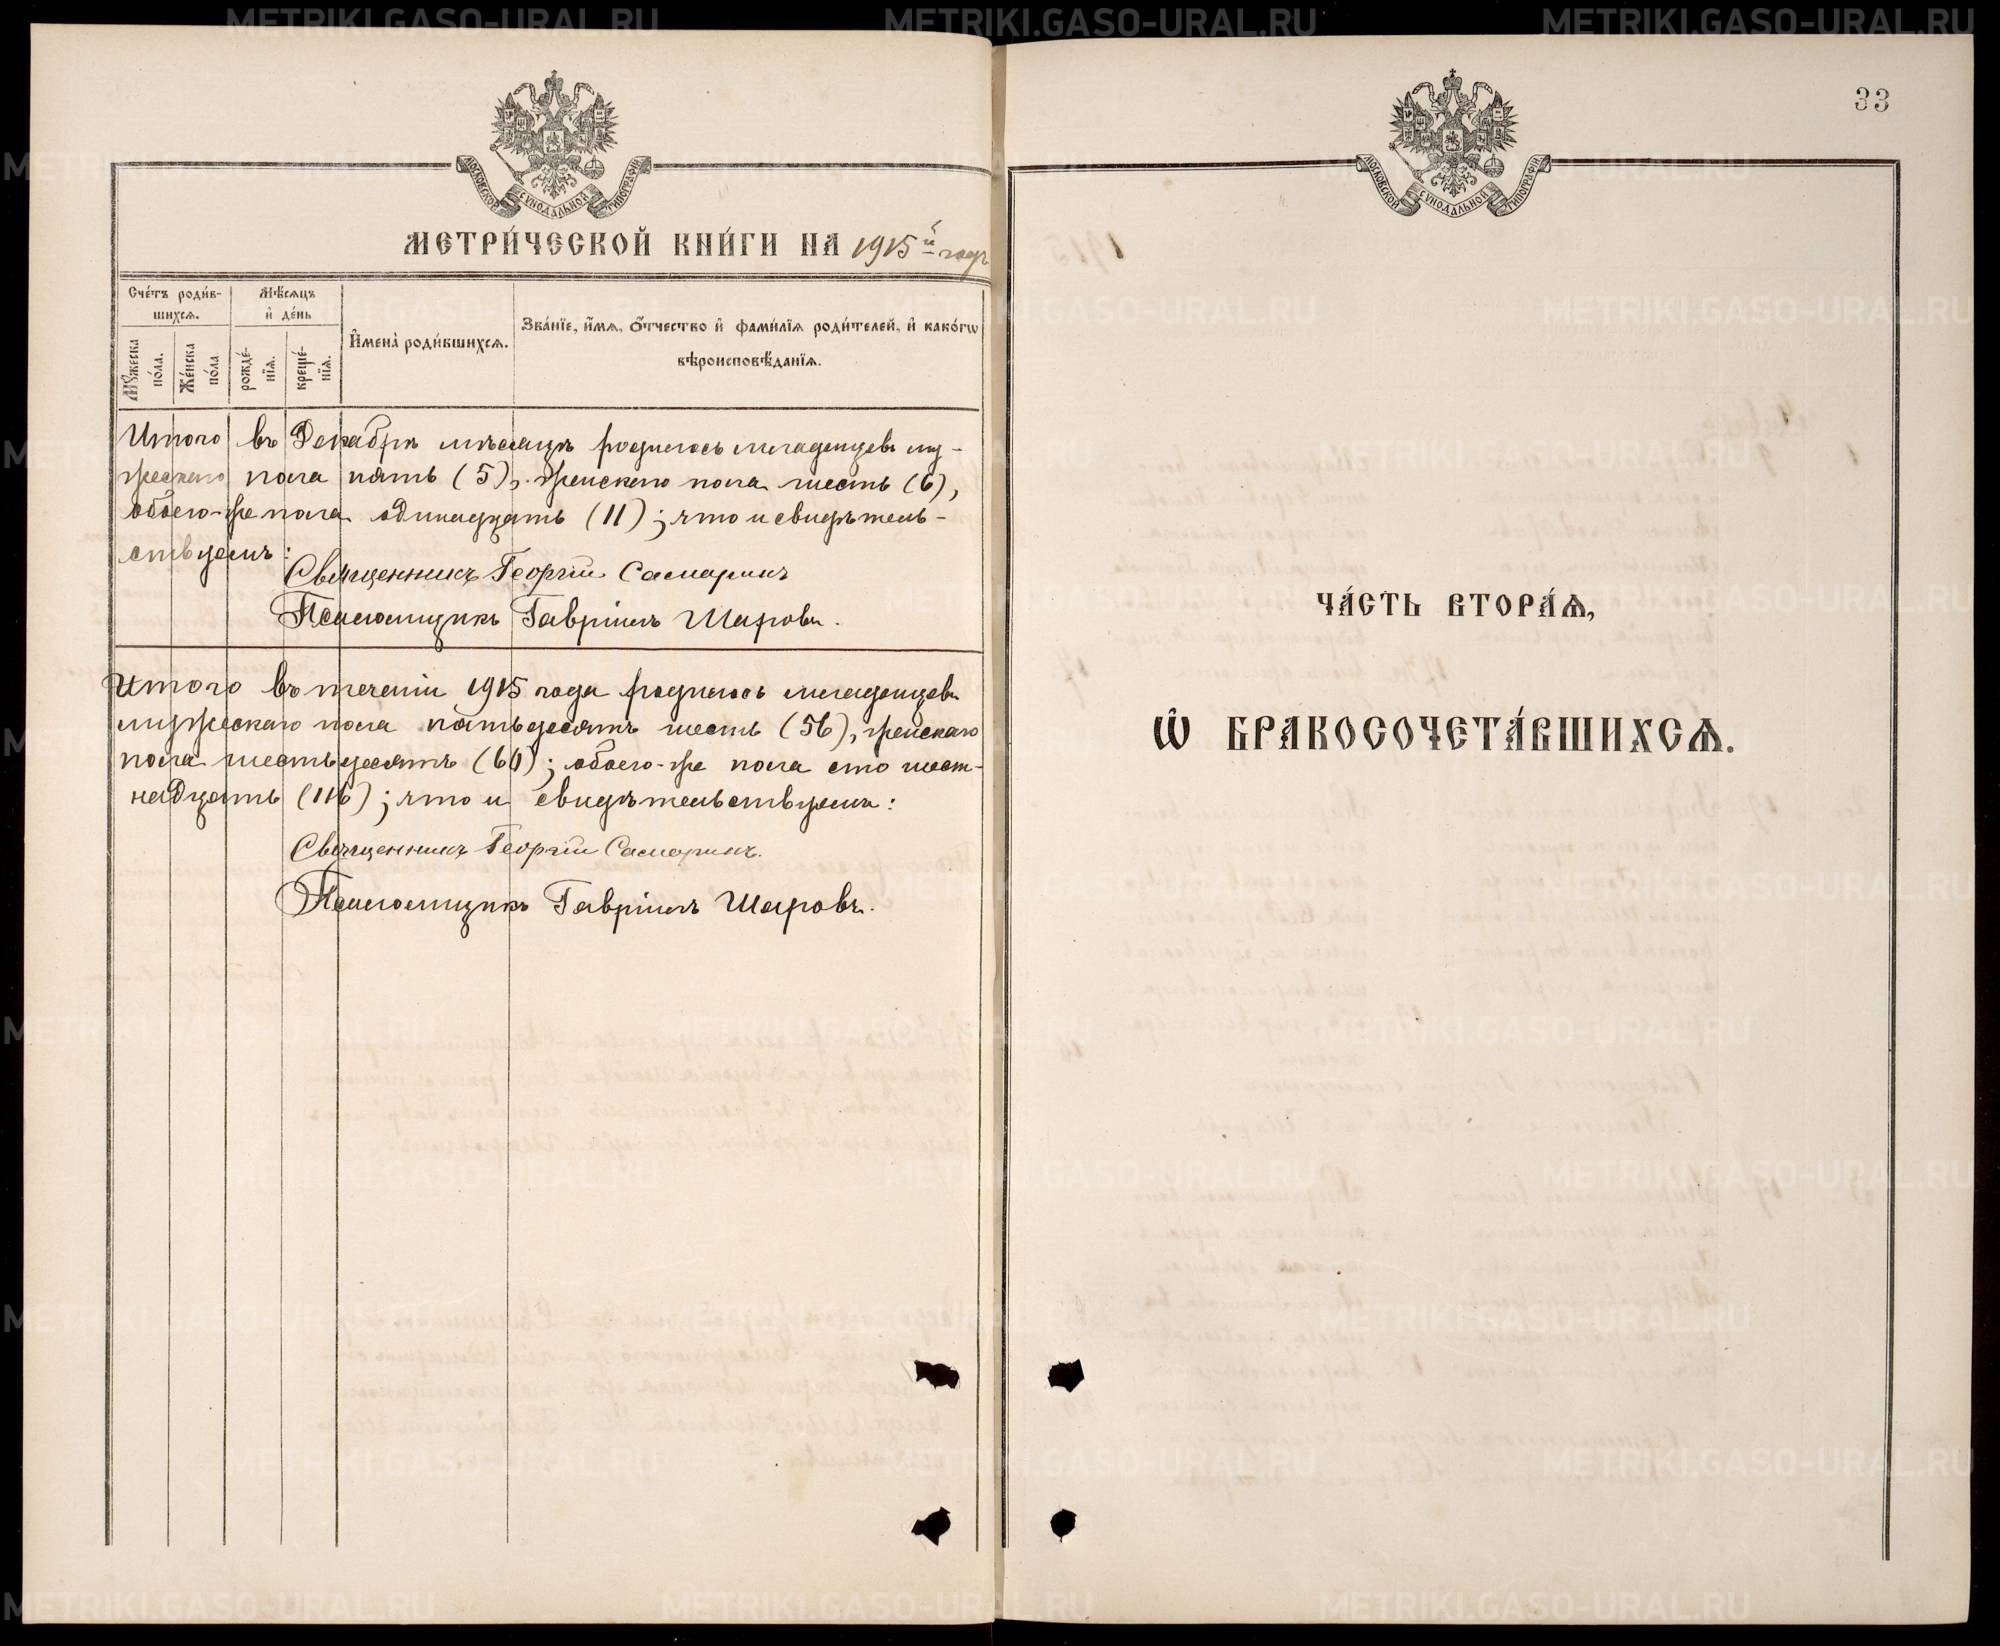 МОСКОВСКОЙ СѴНОДАЛЬНОЙ ТИПОГРАФІИ
МЕТРИ́ЧЕСКОЙ КНИ́ГИ НА 1915й годъ
Сче́тъ роди́в-
шихсѧ.
Мꙋ́жеска
по́ла.
Же́нска
по́ла
Мѣ́сѧцъ
и҆ де́нь
рожде́-
нїѧ.
креще́-
нїѧ.
И҆мена̀ роди́вшихсѧ.
Зва́нїе, и҆́мѧ, ѻ҆́тчество и҆ фами́лїѧ роди́телей, и҆ како́гѡ
вѣроисповѣ́данїѧ.
Итого въ Декабрѣ мѣсяцѣ родилось младенцевъ му-
жескаго пола пять (5), женскаго пола шесть (6),
обоего-же пола одинадцать (11); что и свидѣтель-
ствуемъ:
Священникъ Георгій Самаринъ
Псаломщикъ Гавріилъ Шаровъ.
Итого въ теченіи 1915 года родилось младенцевъ
мужескаго пола пятьдесятъ шесть (56), женскаго
пола шестьдесятъ (60); обоего-же пола сто шест-
надцать (116); что и свидѣтельствуемъ:
Священникъ Георгій Самаринъ.
Псаломщикъ Гавріилъ Шаровъ.
33
МОСКОВСКОЙ СѴНОДАЛЬНОЙ ТИПОГРАФІИ
ЧА́СТЬ ВТОРА́Ѧ,
Ѽ БРАКОСОЧЕТА́ВШИХСѦ.
METRIKI.GASO-URAL.RU